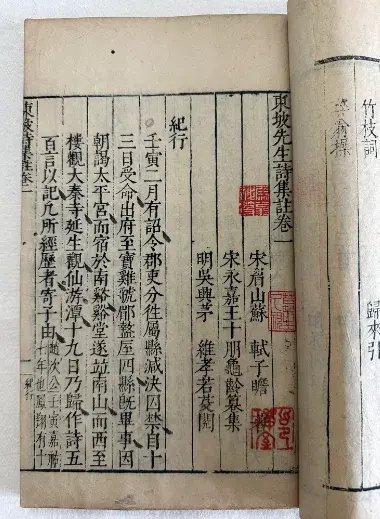 竹枝詞
歸來引
東坡先生詩集註卷一
宋眉山蘇 軾子瞻
宋永嘉王十朋龜齡纂集
明吳興茅 維孝若芟閱
紀行
壬寅二月有詔令郡吏分往屬縣減決囚禁自十
三日受命出府至寶雞虢郿盩厔四縣既畢事因
朝謁太平宮而宿於南谿谿堂遂並南山而西至
樓觀大秦寺延生觀仙游潭十九日乃歸作詩五
百言以記凡所經歷者寄子由
趙次公壬寅嘉祐
七年也鳳翔有十
東坡詩集註卷一
一
紀行